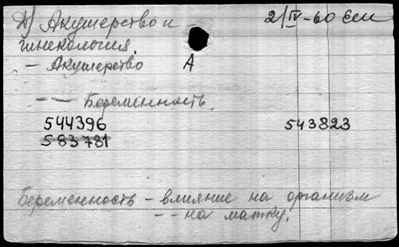 А) Акушерство и 2/IV-60 Сем
гинекология.
- Акушерство А
- — Беременность.
544396 543823
583781
Беременность - влияние на организм
-- на матку.